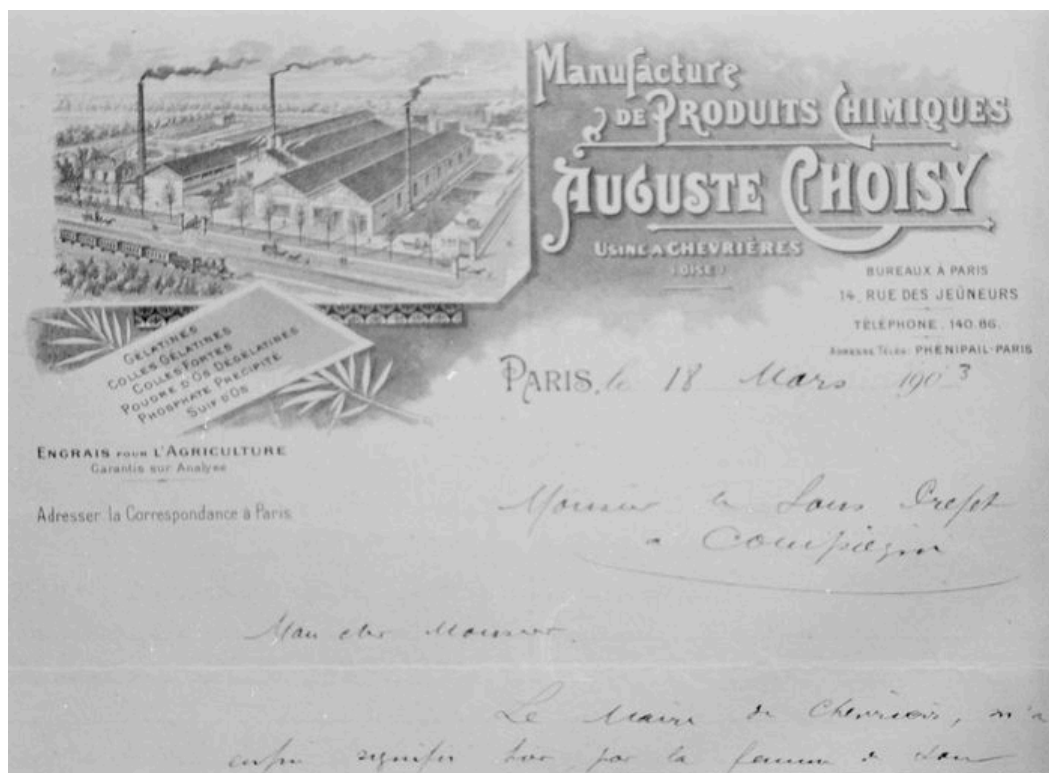 Manufacture
DE PRODUITS CHIMIQUES
AUGUSTE CHOISY
USINE A CHEVRIÈRES
(OISE)
BUREAUX À PARIS
14, RUE DES JEÛNEURS
TÉLÉPHONE . 140.86.
ADRESSE TÉLÉG: PHÉNIPAIL-PARIS
GÉLATINES
COLLES GÉLATINES
COLLES FORTES
POUDRE D'OS DÉGÉLATINÉS
PHOSPHATE PRÉCIPITÉ
SUIF D'OS
PARIS, le 18 Mars 1903
ENGRAIS POUR L'AGRICULTURE
Garantis sur Analyse
Adresser la Correspondance à Paris.
Monsieur le Sous Préfet
a Compiègne
Mon cher Monsieur,
Le Maire de Chevrières, m'a
enfin signifié hier, par la femme de son